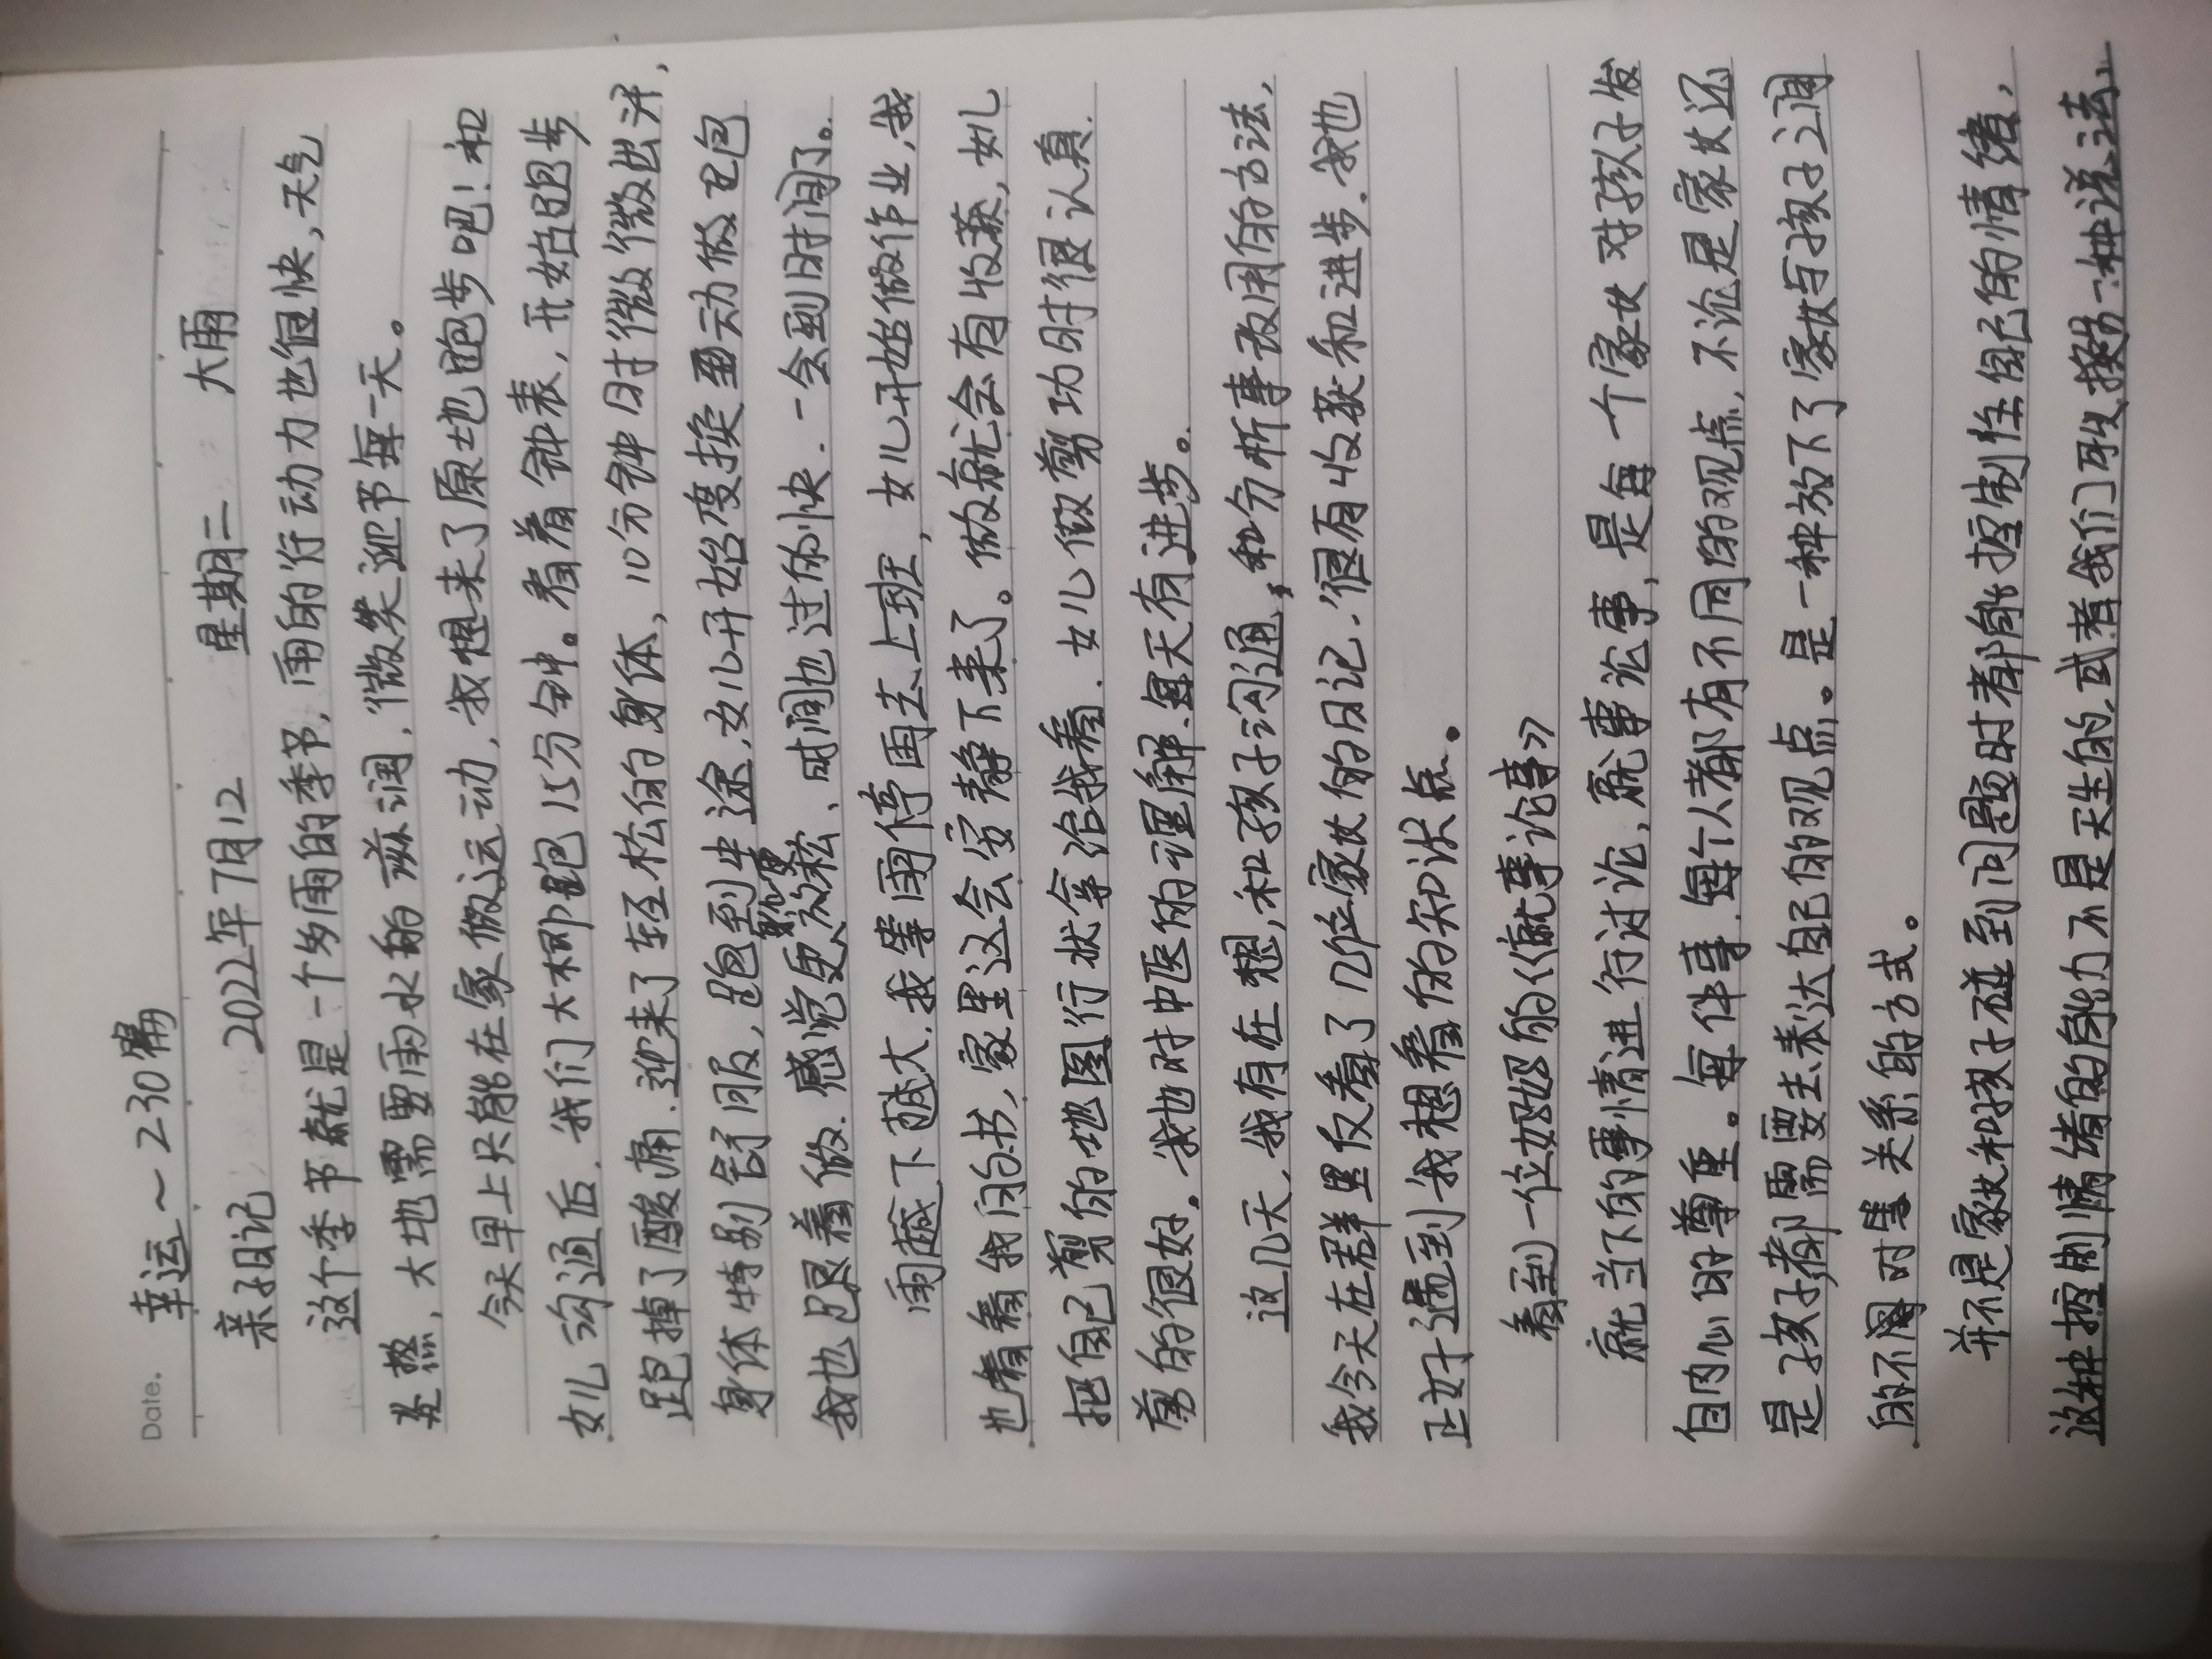 Date.
幸运～230篇
亲子日记 2022年7月12 星期二 大雨
这个季节就是一个多雨的季节,雨的行动力也很快,天气
炎热,大地需要雨水的滋润,微笑迎节每一天。
今天早上只能在家做运动,我想来了原地跑步吧!和
女儿沟通后,我们大概跑15分钟。看着钟表,开始跑步
跑掉了酸痛.迎来了轻松的身体,10分钟时微微出汗,
身体特别舒服,跑到半途,女儿开始度换动做
我也跟着做.感觉更放松、时间也过的快.一会到时间了。
雨越下越大.我等雨停再去上班,女儿开始做作业,我
也看看我的书,家里这会安静下来了。做就会有收获,女儿
把自己剪的地图行状拿给我看.女儿做剪功时很认真.
剪的很好.我也对中医的理解.每天有进步。
这几天,我有在想,和孩子沟通,和分析事改用的方法,
我今天在群里反看了几位家长的日记,很有收获和进步.我也
正好遇到我想看的知识点。
看到一位妈妈的《就事论事》
就当下的事情进行讨论,就事论事,是每一个家长对孩子发
自内心的尊重。每件事.每个人都有不同的观点,不论是家长还
是孩子都需要去表达自己的观点。是一种放下了家长与孩子之间
的不对等关系的方式。
并不是家长和孩子碰到问题时都能控制住自己的情绪,
这种控制情绪的能力不是天生的,或者我们可以换另一种说法,